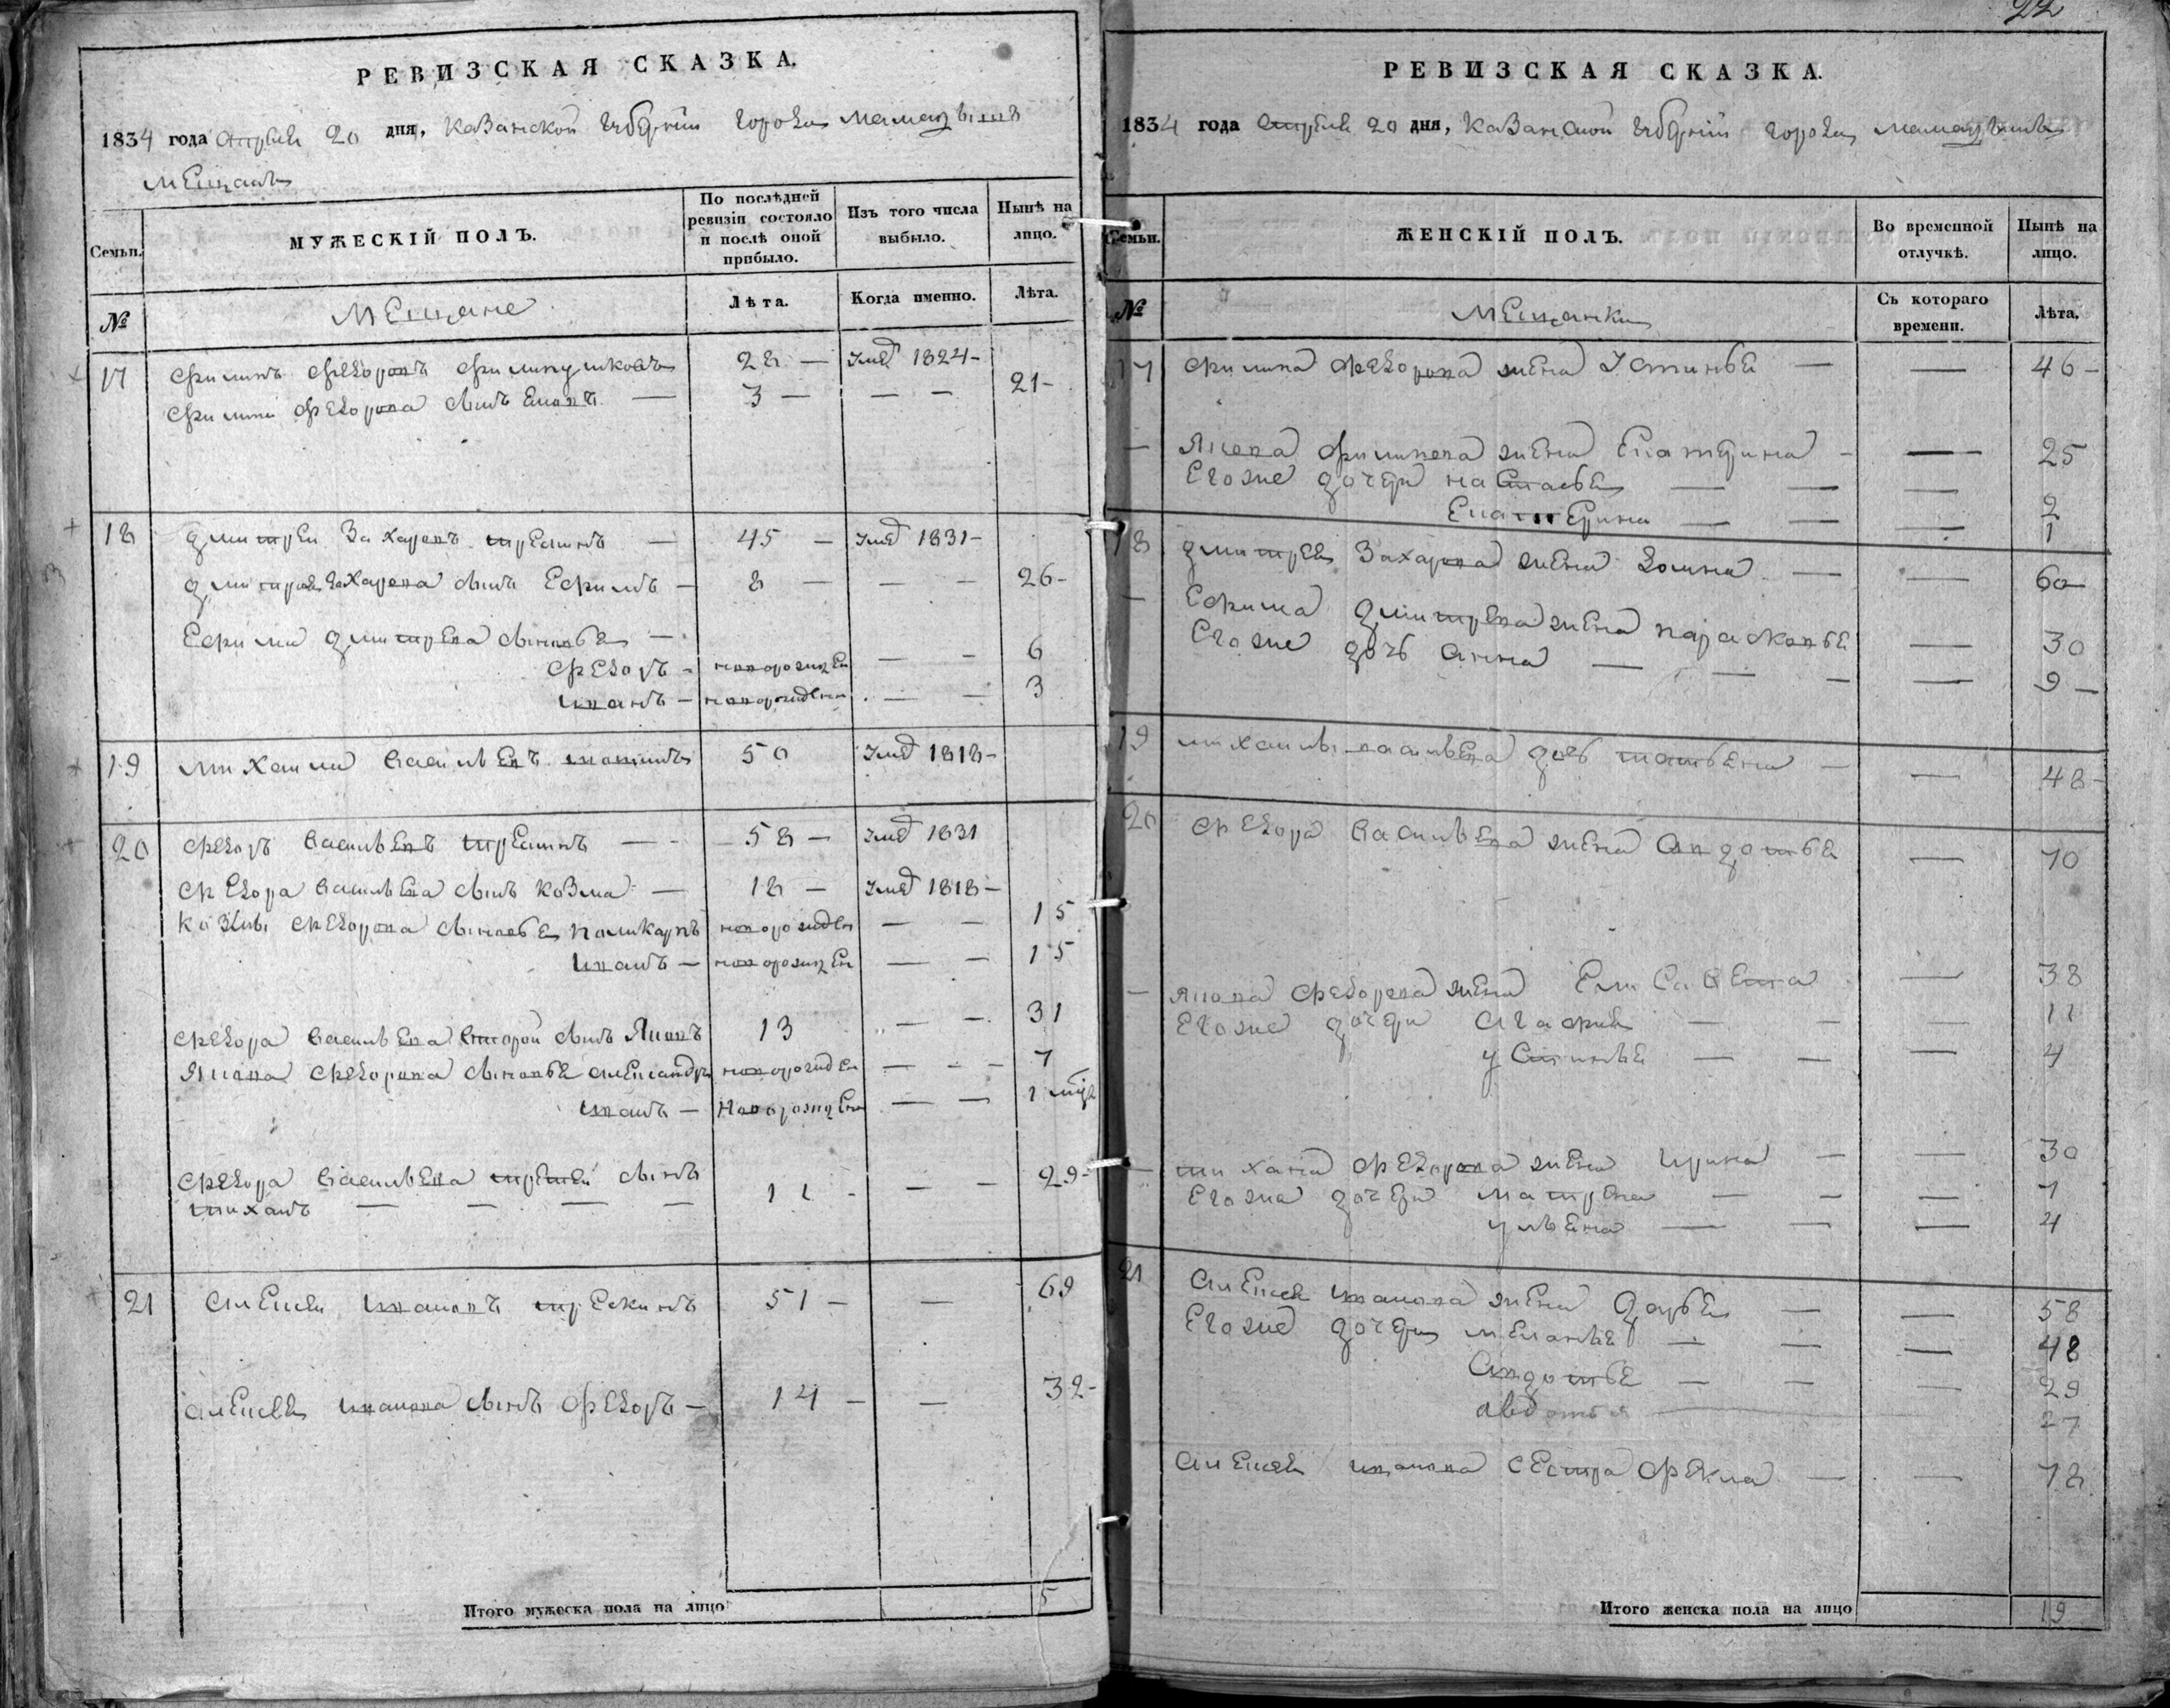 РЕВИЗСКАЯ СКАЗКА.
1834 года апреля 20 дня, Казанской губернии города мамадыша
мещанъ
Семьи.
МУЖЕСКІЙ ПОЛЪ.
По послѣдней ревизіи состояло и послѣ оной прибыло.
Изъ того числа выбыло.
Нынѣ на лицо.
№
Мещане
Лѣта.
Когда именно.
Лѣта.
17 Филипъ Федоровъ 28 — умер 1824 —
Филипа Федорова сынъ Яковъ — 3 — — — 21 —
18 Дмитреи Захаровъ — 45 — умер 1831 —
Дмитрея Захарова сынъ Ефимъ — 8 — — — 26 —
Ефима Дмитрева сыновья —
Федоръ — новорожден — — 6
Иванъ — новорожден — — 3
19 Михаила Васильевъ 50 умер 1818 —
20 Федоръ Васильевъ — 58 — умер 1831
Федора Васильева сынъ Козма — 18 — умер 1818 —
Козмы Федорова сыновья Поликарпъ новорожден — — 15
Иванъ — новорожден — — 15
Федора Васильева второй сынъ Яковъ 13 — — 31
Якова Федорова сыновья александръ новорожден — — 7
Иванъ — Новорожден — — 1
Федора Васильева третей сынъ
тиханъ — — — — 11 — — — 29 —
21 алексеи Ивановъ 51 — — 69
алексея Иванова сынъ Федоръ — 14 — — 32 —
Итого мужеска пола на лицо 5
22
РЕВИЗСКАЯ СКАЗКА.
1834 года апреля 20 дня, Казанской губернии города мамадыша
Семьи.
ЖЕНСКІЙ ПОЛЪ.
Во временной отлучкѣ.
Нынѣ на лицо.
№
Мещанки
Съ котораго времени.
Лѣта.
17 Филипа Федорова жена Устинья — — 46 —
— Якова Филипова жена Екатерина — — 25
Егоже дочери настасья — — — 2
Екатерина — — — 1
18 Дмитрея Захарова жена — — 60
— Ефима Дмитрева жена парасковья — 30
Егоже дочь анна — — — — 9 —
19 михаилы васильева дочь татьяна — — 48 —
20 Федора Васильева жена авдотья — 70
— Якова Федорова жена Елисавета — 38
Егоже дочери агафия — — — 11
устинья — — — 4
— тихана Федорова жена Ирина — — 30
Егожа дочери матрена — — — 7
ульяна — — — 4
21 алексея Иванова жена Дарья — — 58
Егоже дочери меланья — — — 48
авдотья — — — 29
авдотья — — 27
алексея Иванова сестра Фекла — — 78
Итого женска пола на лицо 19